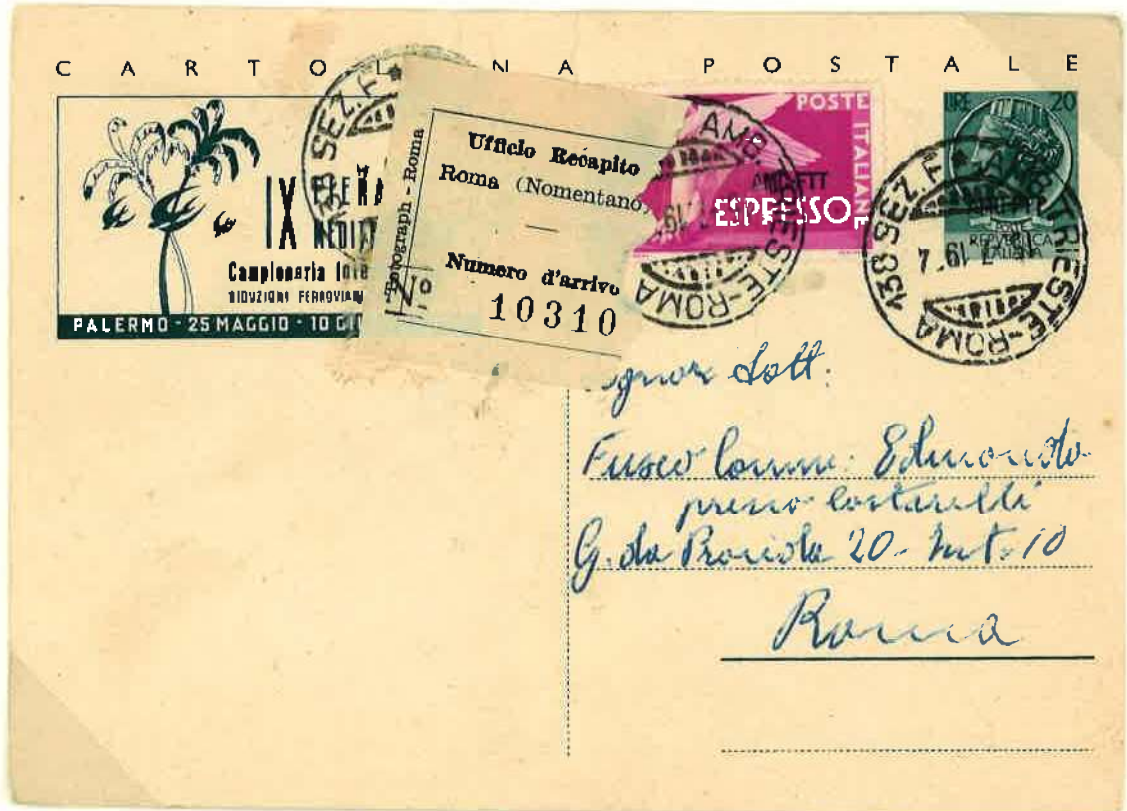 CARTOLINA POSTALE
IX FIERA
MEDIT
Campionaria Inte
RIDUZIONI FERROVIAR
PALERMO - 25 MAGGIO - 10 GIU
Fotograph - Roma
Ufficio Recapito
Roma (Nomentano)
—
Numero d'arrivo
No 10310
POSTE ITALIANE
AMG-FTT
ESPRESSO
LIRE 20
AMG-FTT
REPVBBLICA
ITALIANA
138 SEZ. F. * AMB. TRIESTE-ROMA
138 SEZ. F. * AMB. TRIESTE-ROMA
ignor Dott.
Fusco Comm. Edmondo
presso Costarelli
G. da Procida 20 - Int. 10
Roma